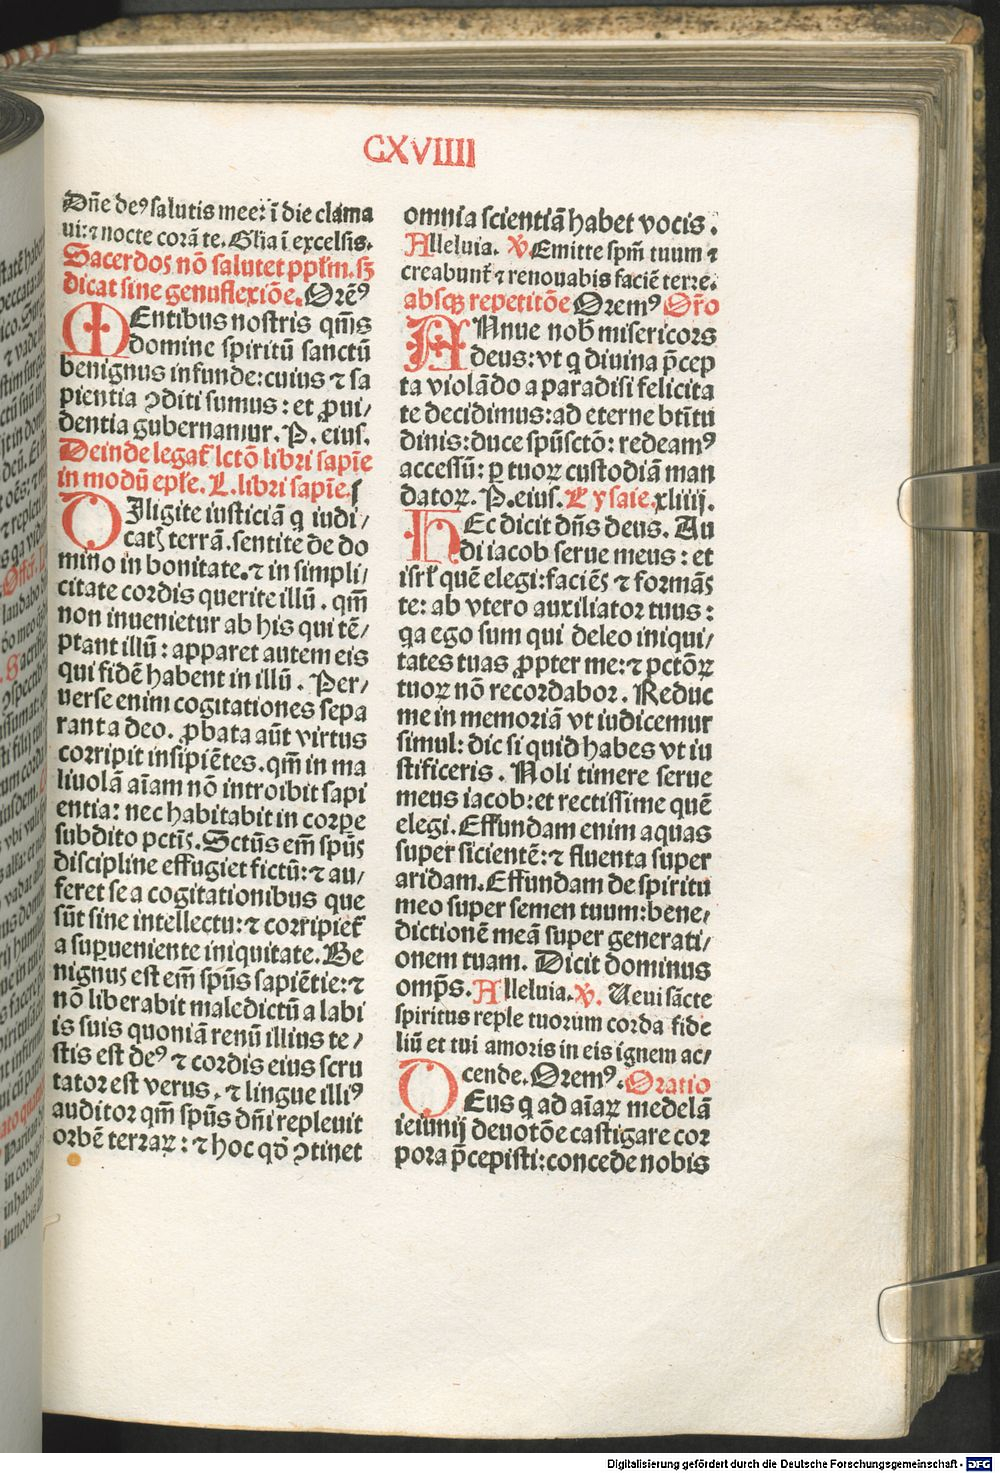 CXVIIII
Dñe deꝰ salutis mee: ī die clama
ui: ⁊ nocte corā te. Glia ī excelsis.
Sacerdos nō salutet ppłm. sꝫ
dicat sine genuflexiōe. Orēꝰ
MEntibus nostris qm̄s
domine spiritū sanctū
benignus infunde: cuius ⁊ sa
pientia ꝯditi sumus: et ꝓui/
dentia gubernamur. P. eius.
Deinde legat᷑ lctō libri sapīe
in modū epłe. L. libri sapīe.
DIligite iusticiā q iudi/
catꝭ terrā. sentite de do
mino in bonitate. ⁊ in simpli/
citate cordis querite illū. qm̄
non inuenietur ab his qui tē/
ptant illū: apparet autem eis
qui fidē habent in illū. Per/
uerse enim cogitationes sepa
rant a deo. ꝓbata aūt virtus
corripit insipiētes. qm̄ in ma
liuolā aīam nō introibit sapi
entia: nec habitabit in corꝑe
subdito pctīs. Sctūs em̄ spūs
discipline effugiet fictū: ⁊ au/
feret se a cogitationibus que
sūt sine intellectu: ⁊ corripiet᷑
a suꝑueniente iniquitate. Be
nignus est em̄ spūs sapiētie: ⁊
nō liberabit maledictū a labi
is suis quoniā renū illius te/
stis est deꝰ ⁊ cordis eius scru
tator est verus. ⁊ lingue illiꝰ
auditor qm̄ spūs dn̄i repleuit
orbē terraꝝ: ⁊ hoc qd̄ ꝯtinet
omnia scientiā habet vocis.
Alleluia. ℣. Emitte spm̄ tuum ⁊
creabunt᷑ ⁊ renouabis faciē terre.
absqꝫ repetitōe Oremꝰ Or̄o
ANnue nob̄ misericors
deus: vt q diuina p̄cep
ta violādo a paradisi felicita
te decidimus: ad eterne btītu
dinis: duce spūsctō: redeamꝰ
accessū: ꝑ tuoꝝ custodiā man
datoꝝ. P. eius. Eysaie. xliiij.
HEc dicit dn̄s deus. Au
di iacob serue meus: et
isrł quē elegi: faciēs ⁊ formās
te: ab vtero auxiliator tuus:
qa ego sum qui deleo iniqui/
tates tuas ꝓpter me: ⁊ pctōꝝ
tuoꝝ nō recordabor. Reduc
me in memoriā vt iudicemur
simul: dic si quid habes vt iu
stificeris. Noli timere serue
meus iacob: et rectissime quē
elegi. Effundam enim aquas
super sicientē: ⁊ fluenta super
aridam. Effundam de spiritu
meo super semen tuum: bene/
dictionē meā super generati/
onem tuam. Dicit dominus
omp̄s. Alleluia. ℣. Ueui sācte
spiritus reple tuorum corda fide
liū et tui amoris in eis ignem ac/
cende. Oremꝰ. Oratio
DEus q ad aīaꝝ medelā
ieiunij deuotōe castigare cor
pora p̄cepisti: concede nobis
Digitalisierung gefördert durch die Deutsche Forschungsgemeinschaft - DFG